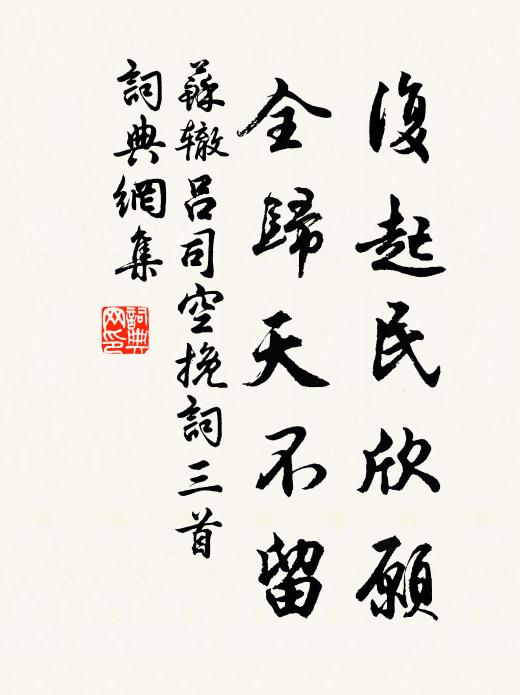 復起民欣願
全歸天不留
蘇辙吕司空挽詞三首
詞典網集
詞典网印